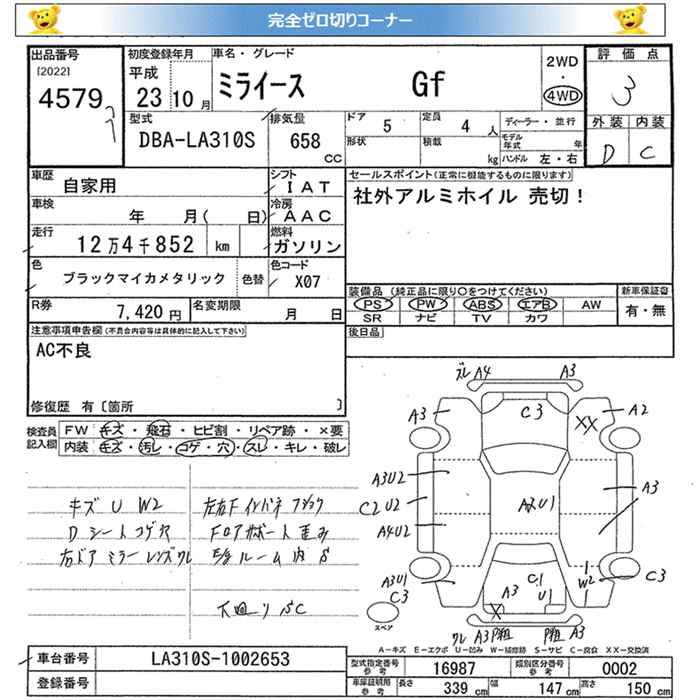 完全ゼロ切りコーナー
出品番号
[2022]
4579
初度登録年月
平成
23年10月
車名・グレード
ミライース Gf
2WD
・
4WD
評価点
3
外装 内装
D C
型式
DBA-LA310S
排気量
658
CC
ドア
5
定員
4人
形状
積載
kg
ディーラー・並行
モデル年式 年
ハンドル 左・右
車歴
自家用
シフト
IAT
車検
年 月( 日)
冷房
AAC
走行
12万4千852 km
燃料
ガソリン
色
ブラックマイカメタリック
色替
色コード
X07
R券
7,420円
名変期限
月 日
セールスポイント(正常に機能するものに限ります)
社外アルミホイル 売切!
装備品(純正品に限り○をつけてください)
PS PW ABS エアB AW
SR ナビ TV カワ
新車保証書
有・無
後日品
注意事項申告欄(不具合内容等は具体的に記入して下さい)
AC不良
修復歴 有〔箇所 〕
検査員記入欄
FW キズ・飛石・ヒビ割・リペア跡・×要
内装 キズ・汚レ・コゲ・穴・スレ・キレ・破レ
キズ U W2
Dシートコゲ穴
右ドアミラーレンズワレ
左右Fインパネ
Fロアサポート歪み
ルーム内S
下廻りSC
ズレ A4 A3
A3
C3
XX
A2
A3U2
C2U2
A4U2
A2U1
A3
A3U1
C3
A3
C1
U1
W2
C3
X
スペア
ワレ A3 P粗 P粗 A3
A-キズ E-エクボ U-凹み W-補修跡 S-サビ C-腐食 XX-交換済
車台番号
LA310S-1002653
登録番号
型式指定番号
参考
16987
類別区分番号
参考
0002
車庫証明用
参考
長さ
339 cm
幅
147 cm
高さ
150 cm